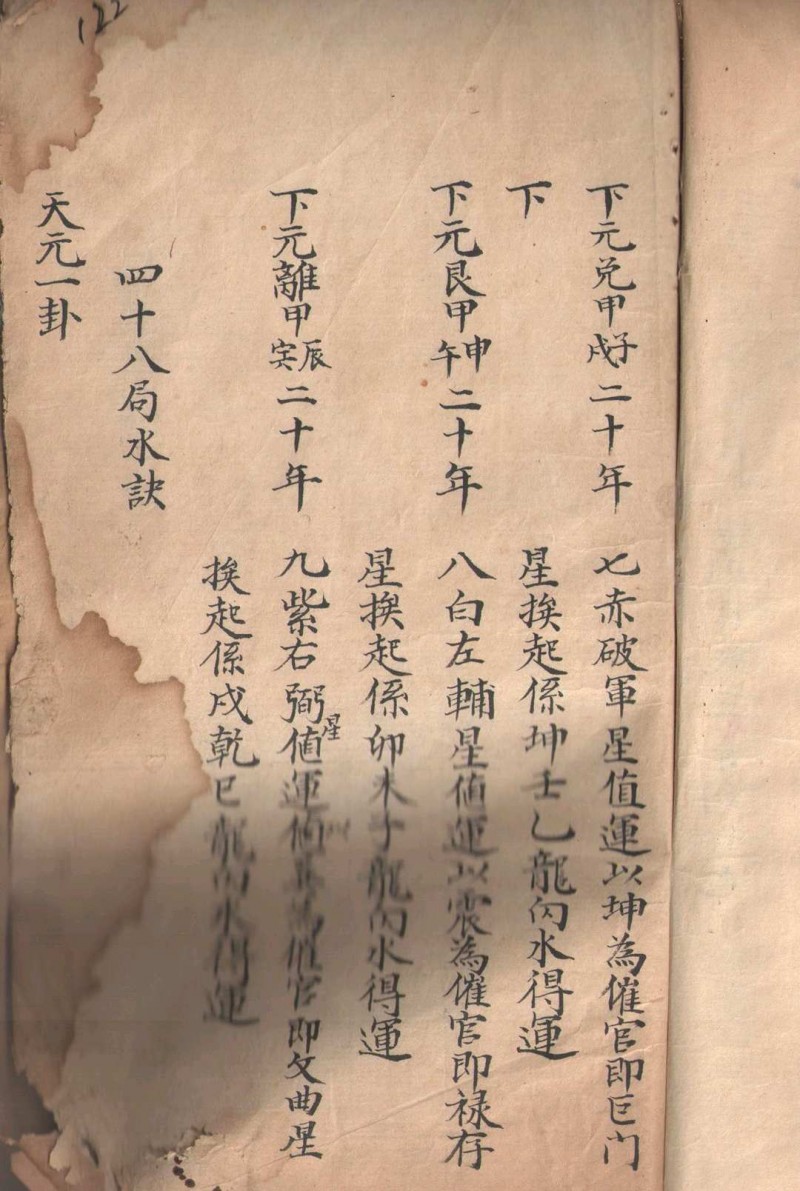 122
下元兌甲子戌二十年　七赤破軍星值運以坤為催官即巨门
下　星挨起係坤壬乙龍向水得運
下元艮甲申午二十年　八白左輔星值運以震為催官即禄存
星挨起係卯未子龍向水得運
下元離甲辰寅二十年　九紫右弼星值運值為催官即文曲星
挨起係戌乾巳龍向水得運
四十八局水訣
天元一卦